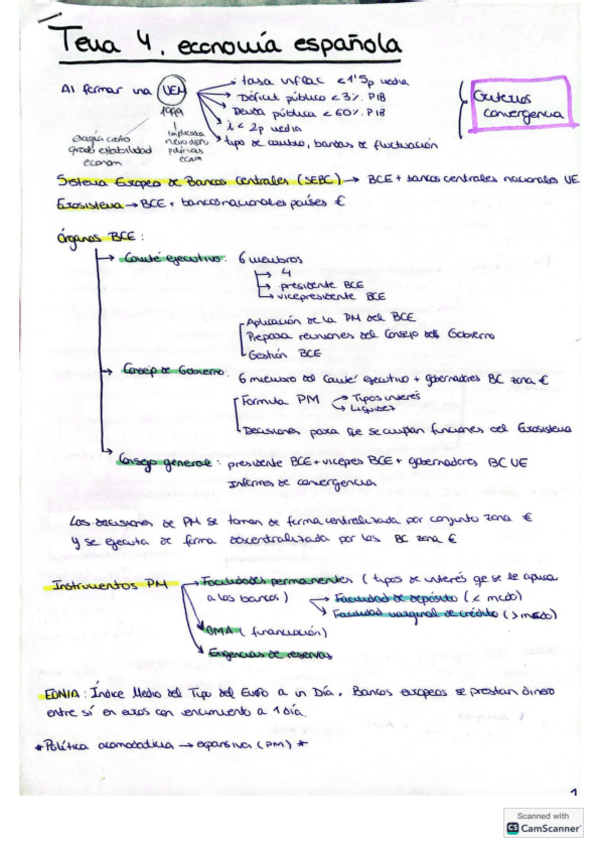 Tema 4. economía española
Al formar una UEM
1999
exigía cierto grado estabilidad econom
implicaba nuevo dpto políticas econ
tasa inflac < 1'5p media
Déficit público < 3% PIB
Deuda pública < 60% PIB
i < 2p media
tipo de cambio, bandas de fluctuación
Criterios convergencia
Sistema Europeo de Bancos Centrales (SEBC) → BCE + bancos centrales nacionales UE
Eurosistema → BCE + bancos nacionales países €
Órganos BCE:
Comité ejecutivo: 6 miembros
4
presidente BCE
vicepresidente BCE
Aplicación de la PM del BCE
Prepara reuniones del Consejo del Gobierno
Gestión BCE
Consejo de Gobierno: 6 miembro del Comité ejecutivo + gobernadores BC zona €
Formula PM
Tipos interés
Liquidez
Decisiones para que se cumplan funciones del Eurosistema
Consejo general: presidente BCE + vicepres BCE + gobernadores BC UE
Informes de convergencia
Las decisiones de PM se toman de forma centralizada por conjunto zona €
y se ejecuta de forma descentralizada por los BC zona €
Instrumentos PM
Facilidades permanentes (tipos de interés qe se le aplica
a los bancos)
Facilidad de depósito (< mcdo)
Facilidad marginal de crédito (> mcdo)
OMA (financiación)
Exigencias de reservas
EONIA: Índice Medio del Tipo del Euro a un Día. Bancos europeos se prestan dinero
entre sí en euros con vencimiento a 1 día.
*Política acomodaticia → expansiva (PM) *
1
Scanned with
CS CamScanner